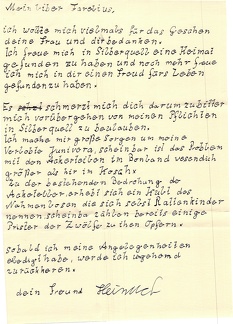 Mein lieber Farelius,
ich wollte mich vielmals für das Geschenk
deine Frau und dir bedanken.
Ich freue mich in Silberquell eine Heimat
gefunden zu haben und noch mehr freue
ich mich in dir einen Freund fürs Leben
gefunden zu haben.
Es schmerzt mich dich darum zu bitten
mich vorübergehen von meinen Pflichten
in Silberquell zu beulauben.
Ich mache mir große Sorgen um meine
Verlobte Junivera, scheinbar ist das Problem
mit den im Bornland
größer als hir in Kosch.
Zu der bestehenden Bedrohung de
erhebt sich ein Kult des
Namenlosen die sich selbst Rattenkinder
nennen scheinba zählen bereits einige
Prister der Zwölfe zu ihren Opfern.
sobald ich meine Angelegenheiten
erledigt habe, warde ich umgehend
zurückkeren.
dein freund